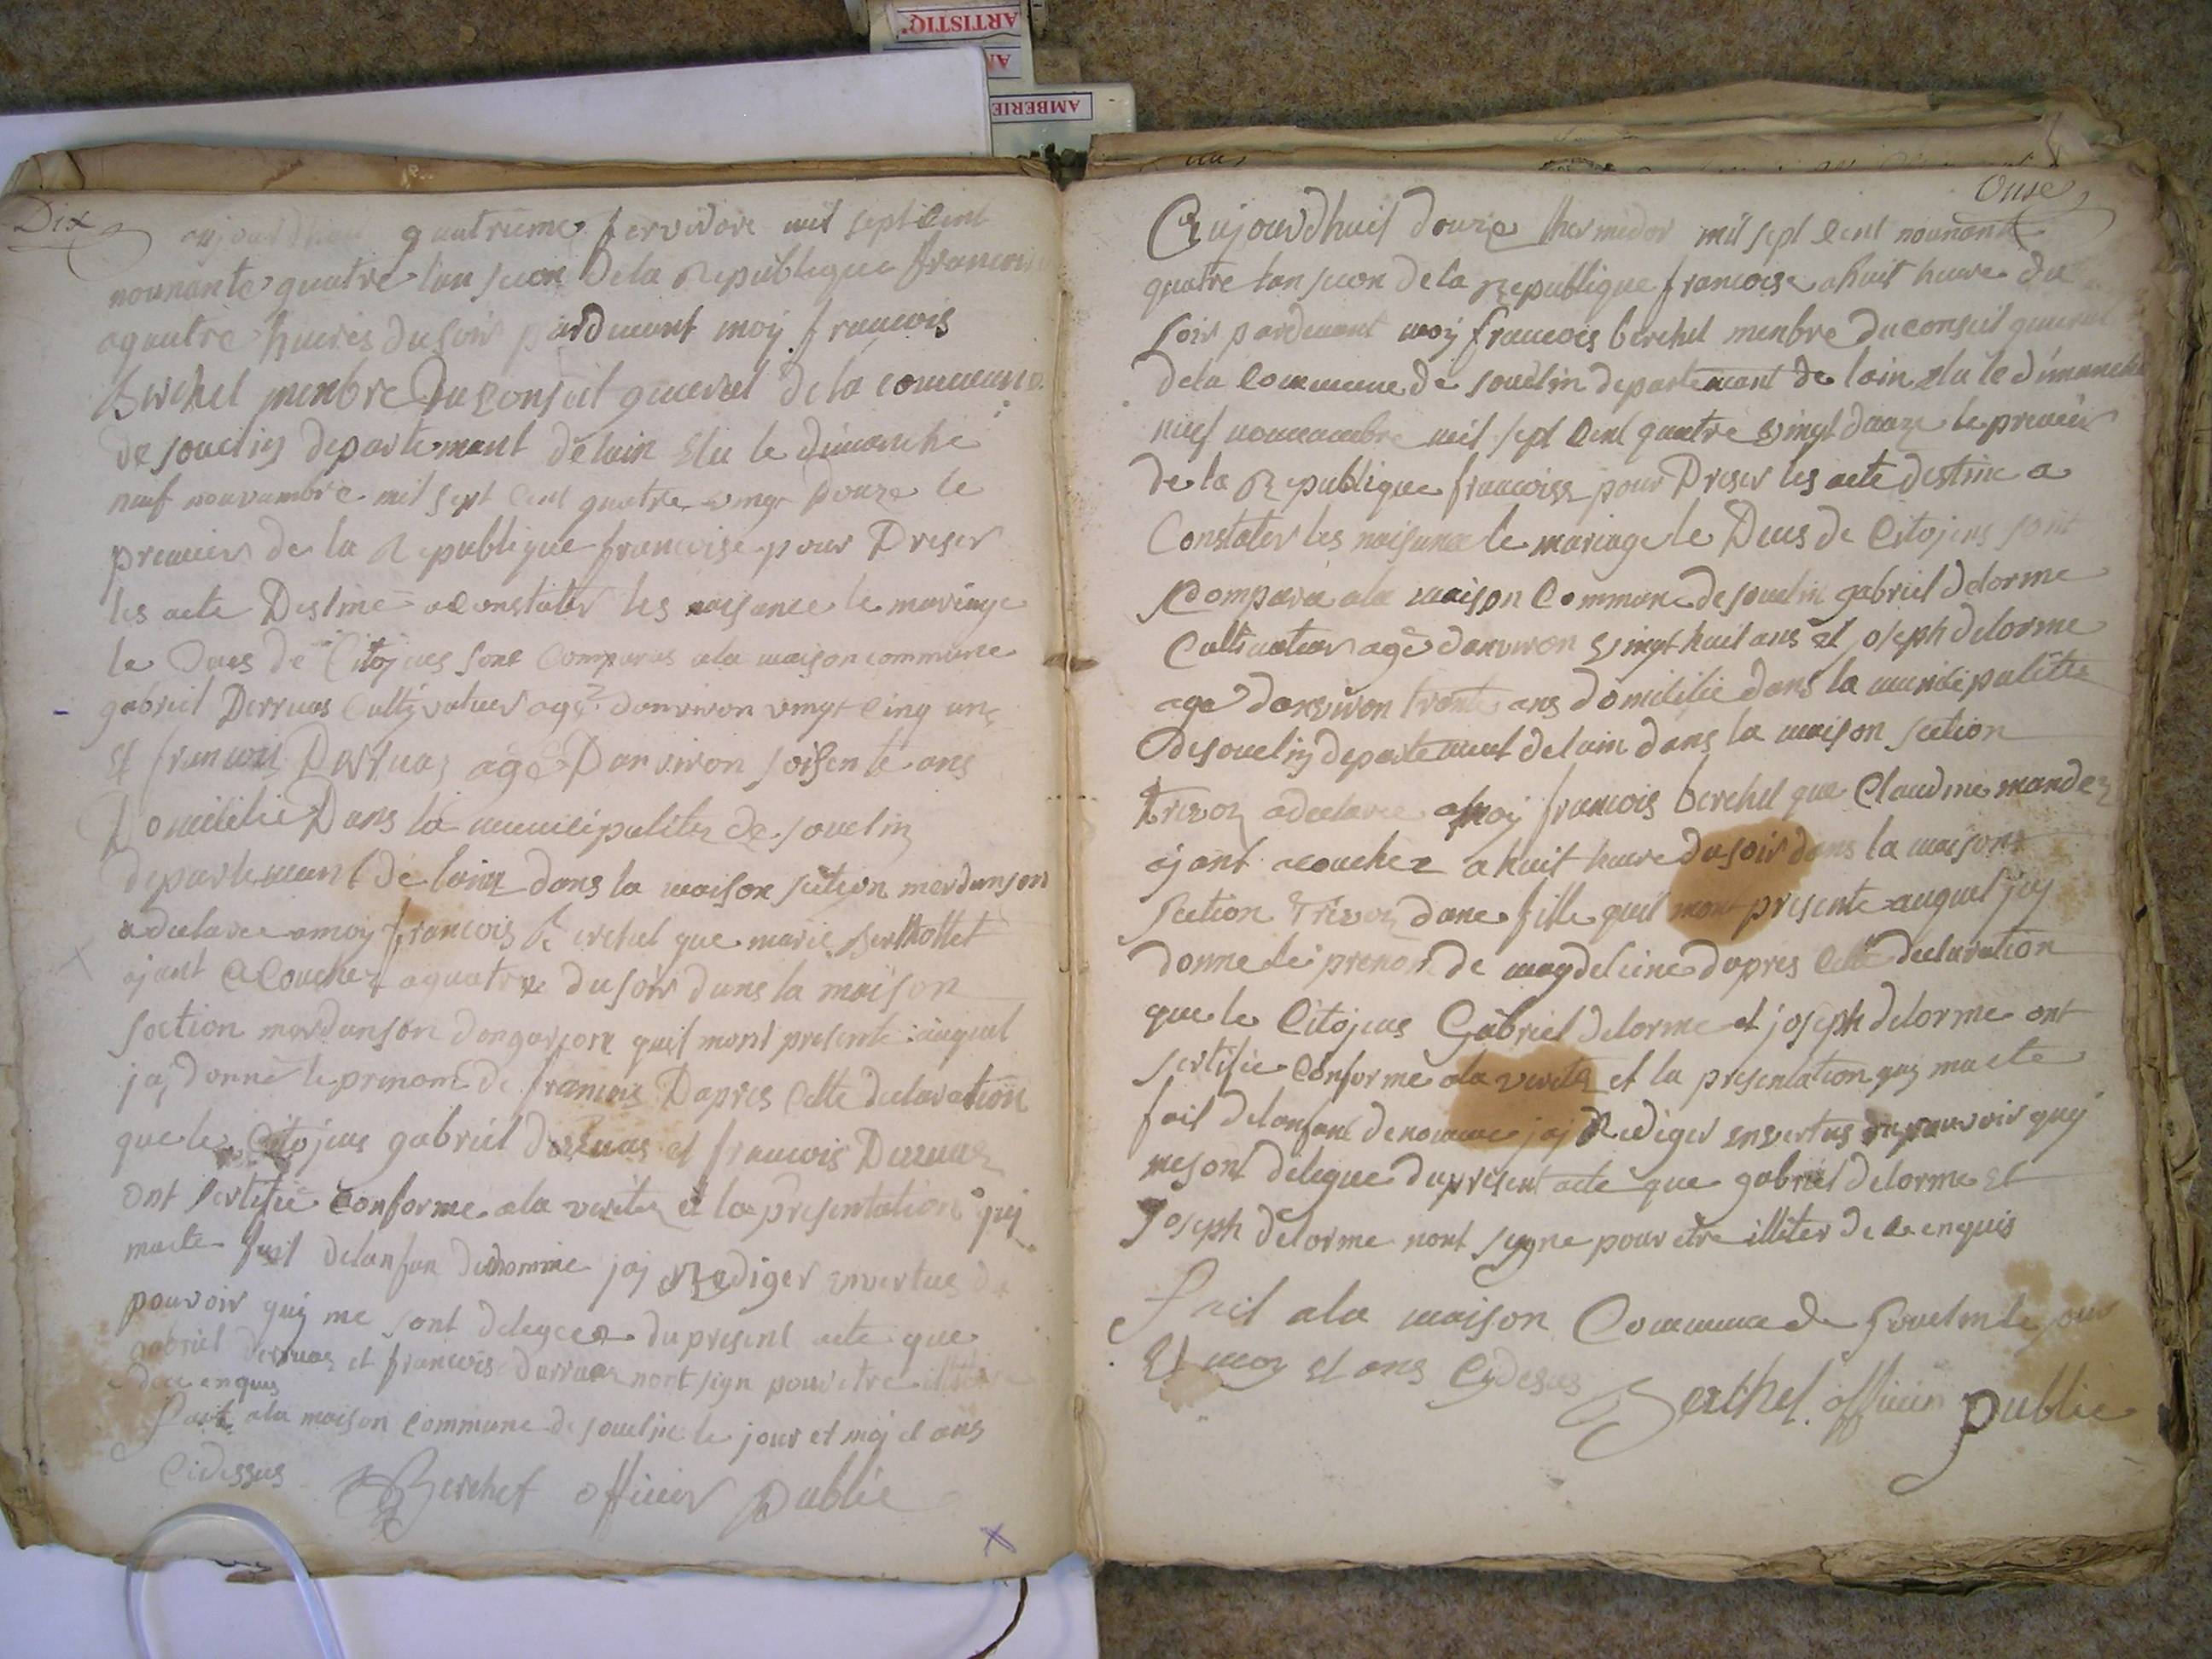 ARTISTIQ'
AMBERIE
Dix
aujourdhui quatrieme fervidore mil sept Cent
nounante quatre lan scon De la Republique francoise
a quatre heures du soir pardevant moy francois
Berchet menbre Du Conseil general de la commune
de souclin departemant de lain Elu le dimanche
neuf nouvambre mil sept Cent quatre vingt Douze le
premier de la Republique francoise pour Dreser
les acte Destine a Constater les naisance le mariage
le Deces de Citojens sont Comparus a la maison commune
gabriel Derruas Cultivateur agé danviron vingt Cinq ans
Et francois Derruas agé Danviron soisente ans
Domicilié Dans la municipalitez de souclin
departemant de lain dans la maison section merdanson
a declaree a moy francois Berchet que marie Berthollet
ajant acouchez a quatre du soir dans la maison
section merdanson don garçon quil mont presente auquel
jaj donné le prenom de francois Dapres Cette declaration
que le Citojens gabriel derruas et francois Derruas
ont sertifie Conforme a la veritez et la presentation quj
macte fait delanfan denomme jaj Rediger envertus de
pouvoir quj me sont delegees du present acte que
gabriel derruas et francois derruas nont sign pour etre illitere
dece enquis
Fait a la maison Commune de souclin le jour et moj et ans
Cidessus Berchet officier public
Onse
Aujourdhuit douze thermidor mil sept Cent nounante
quatre lan scon de la Republique francoise a huit heure du
soir pardevant moy francois berchet menbre du conseil general
de la Commune de souclin departemant de lain elu le dimanche
neuf nouvambre mil sept Cent quatre vingt douze le premier
de la Republique francoise pour Dreser les acte destine a
Constater les naisance le mariage le Deces de Citojens sont
Comparu a la maison Commune de souclin gabriel delorme
Cultivateur agé danviron vingt huit ans et joseph delorme
age danviron trante ans domicilié dans la municipalitez
de souclin departemant de lain dans la maison section
trevoz a declaree a moy francois berchet que Claudine mandez
ajant acouchez a huit heure du soir dans la maison
section trevoz dune fille quil mont presente auquel jaj
donne le prenom de magdeleine dapres Cette declaration
que le Citojens Gabriel delorme et joseph delorme ont
sertifie Conforme a la veritez et la presentation quj macte
fait delanfant denomme jaj Rediger envertus du pouvoir quj
me sont delegue du present acte que gabriel delorme et
Joseph delorme nont signe pour etre illiter de ce enquis
Fait a la maison Commune de Souclin le jour
Et moy et ans Cydesus Berthet officier public